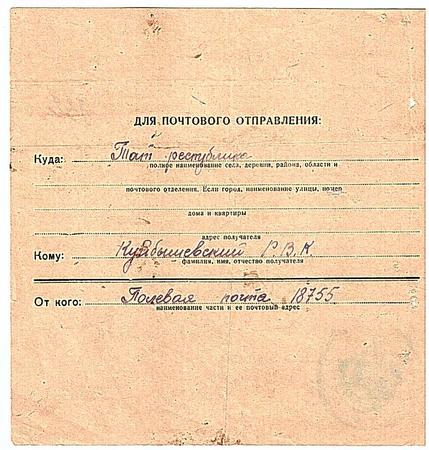 ДЛЯ ПОЧТОВОГО ОТПРАВЛЕНИЯ:
Куда: Тат республика
полное наименование села, деревни, района, области и
почтового отделения. Если город, наименование улицы, номер
дома и квартиры
адрес получателя
Кому: Куйбышевский Р.В.К.
фамилия, имя, отчество получателя
От кого: Полевая почта 18755
наименование части и ее почтовый адрес